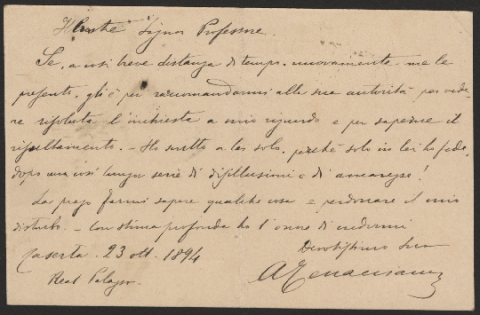 Illustre Signor Professore
Se, a così breve distanza di tempo, nuovamente me le
presento, gli è per raccomandarmi alla sua autorità per vede-
re risoluta l'inchiesta a mio riguardo e per saperne il
risultamento. - Ho scritto a lei solo, perchè solo in lei ho fede,
dopo una così lunga serie di disillusioni e di amarezze!
La prego farmi sapere qualche cosa e perdonare il mio
disturbo. - Con stima profonda ho l'onore di credermi
Caserta 23 ott. 1894 Devotissimo Suo
Real Palazzo.